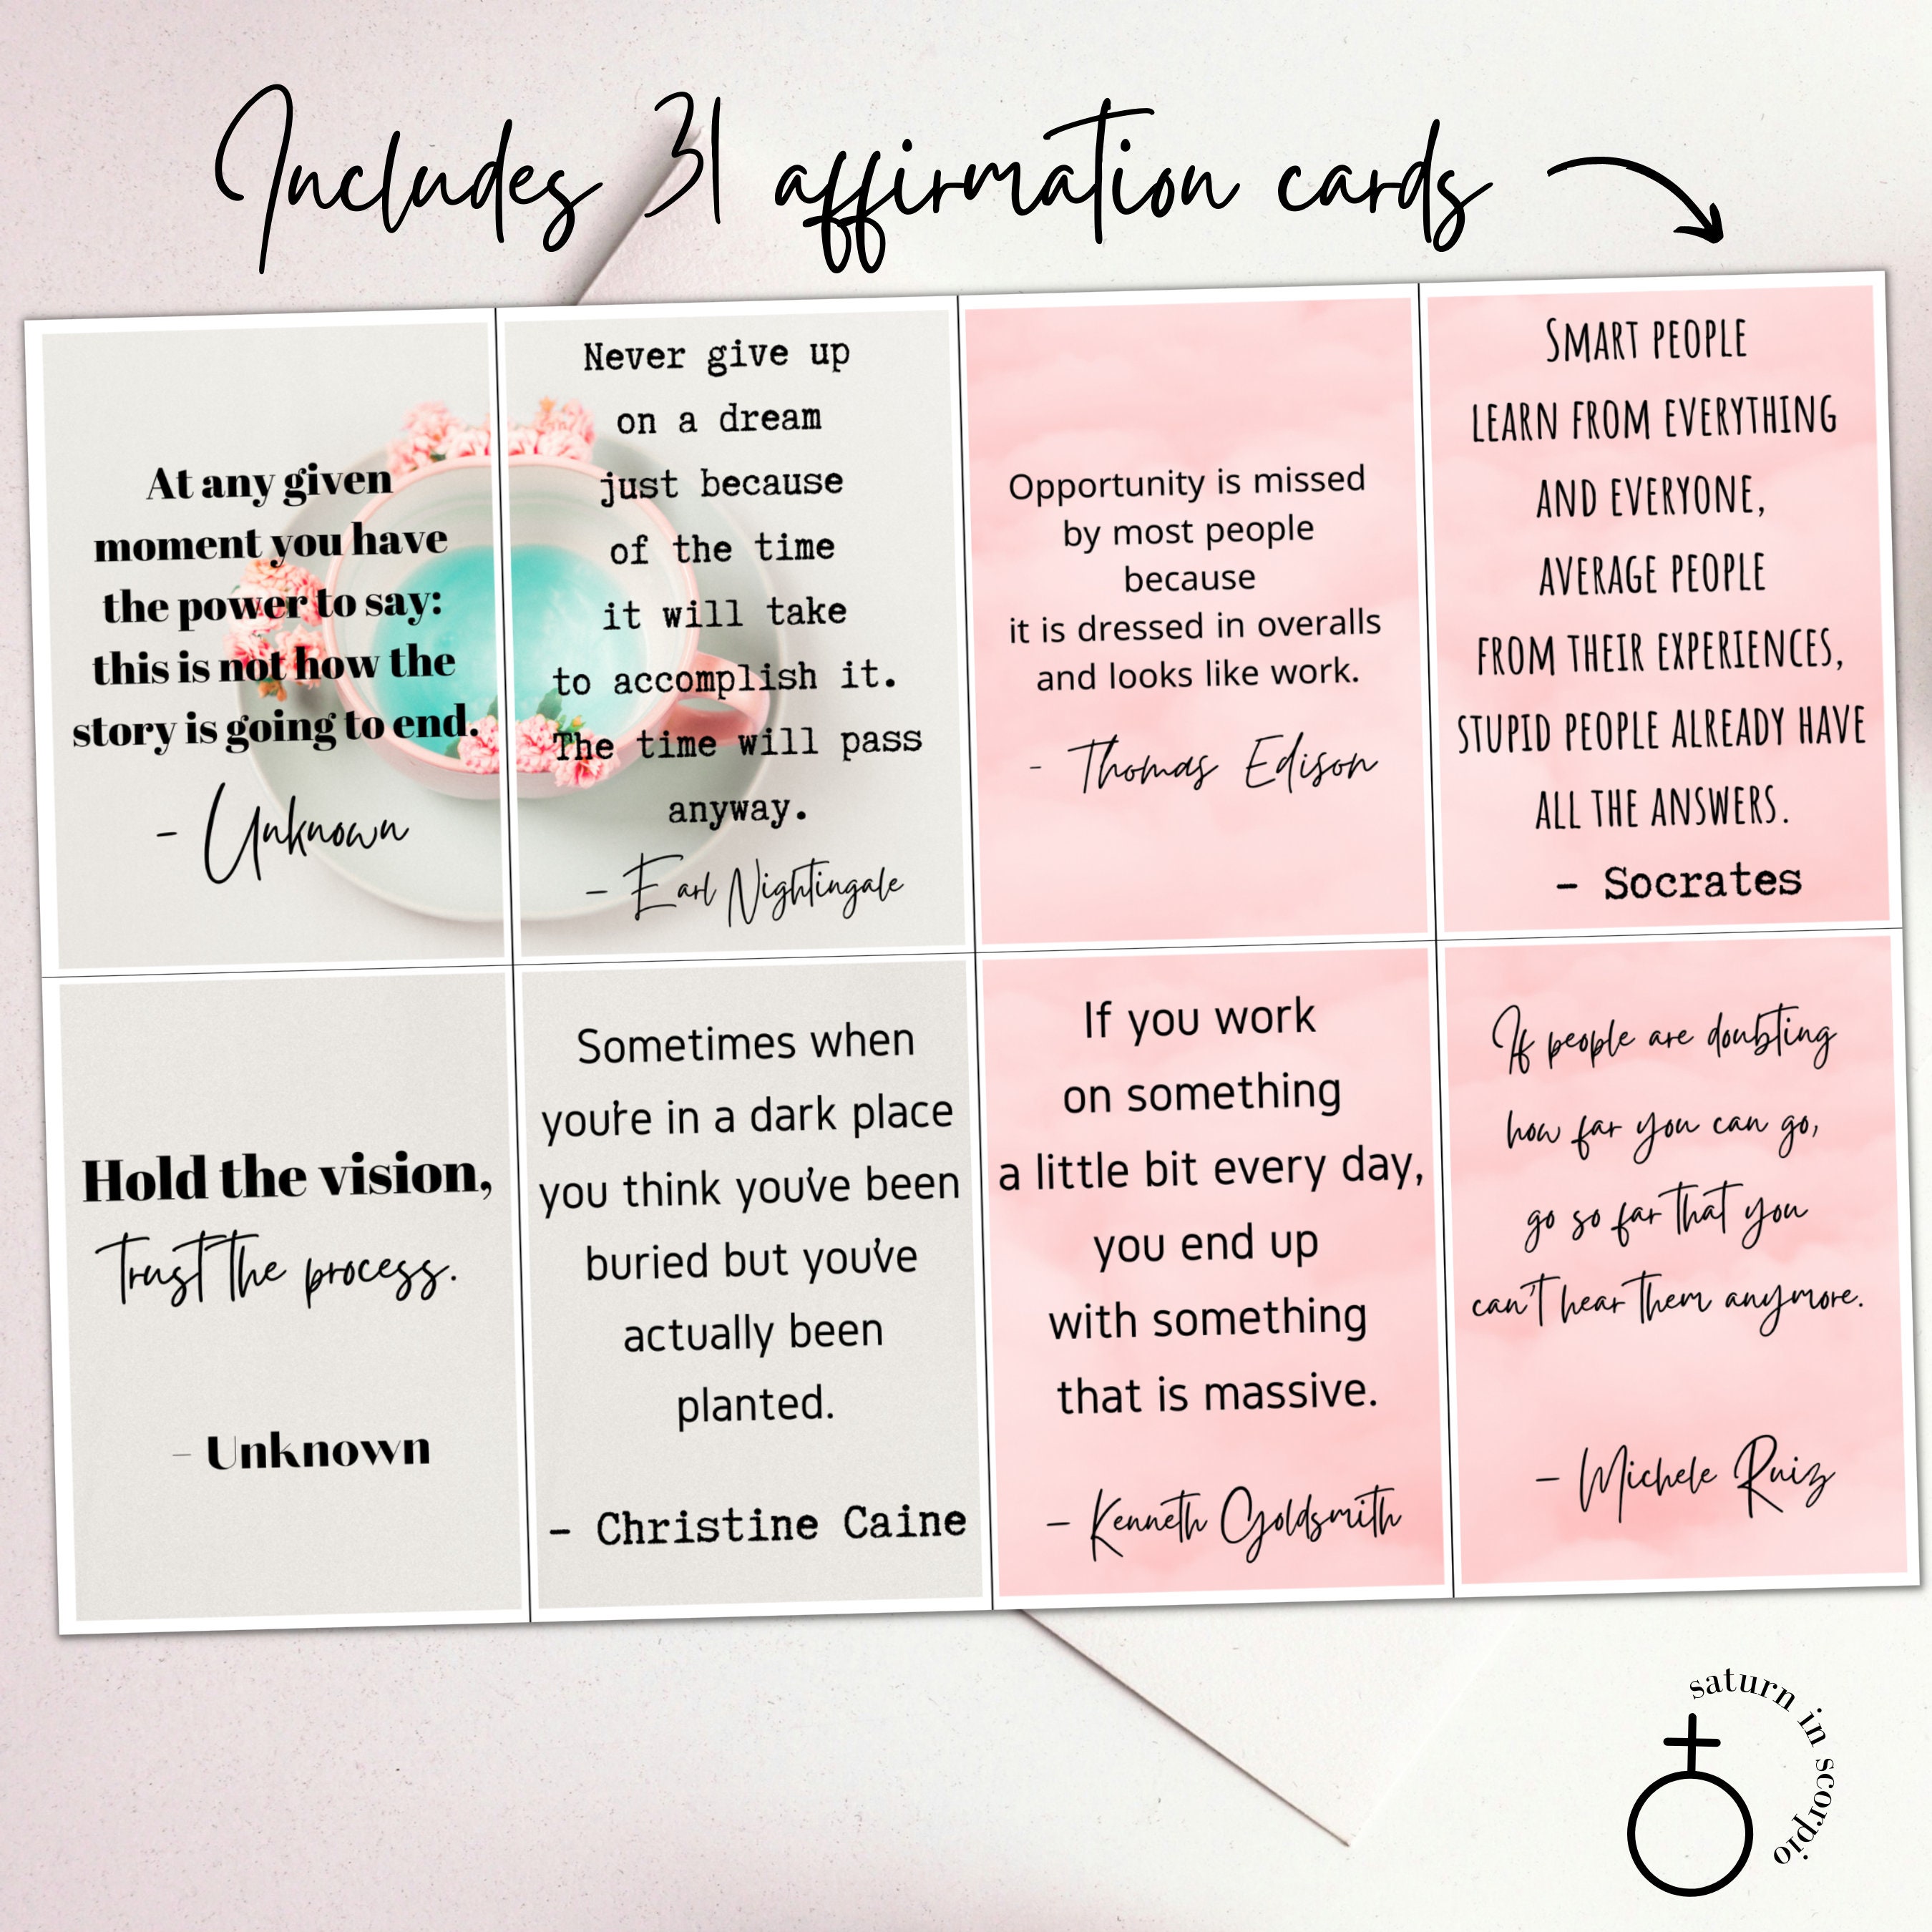 Includes 31 affirmation cards
At any given
moment you have
the power to say:
this is not how the
story is going to end.
- Unknown
Never give up
on a dream
just because
of the time
it will take
to accomplish it.
The time will pass
anyway.
- Earl Nightingale
Opportunity is missed
by most people
because
it is dressed in overalls
and looks like work.
- Thomas Edison
SMART PEOPLE
LEARN FROM EVERYTHING
AND EVERYONE,
AVERAGE PEOPLE
FROM THEIR EXPERIENCES,
STUPID PEOPLE ALREADY HAVE
ALL THE ANSWERS.
- Socrates
Hold the vision,
Trust the process.
- Unknown
Sometimes when
you're in a dark place
you think you've been
buried but you've
actually been
planted.
- Christine Caine
If you work
on something
a little bit every day,
you end up
with something
that is massive.
- Kenneth Goldsmith
If people are doubting
how far you can go,
go so far that you
can't hear them anymore.
- Michele Ruiz
saturn in scorpio